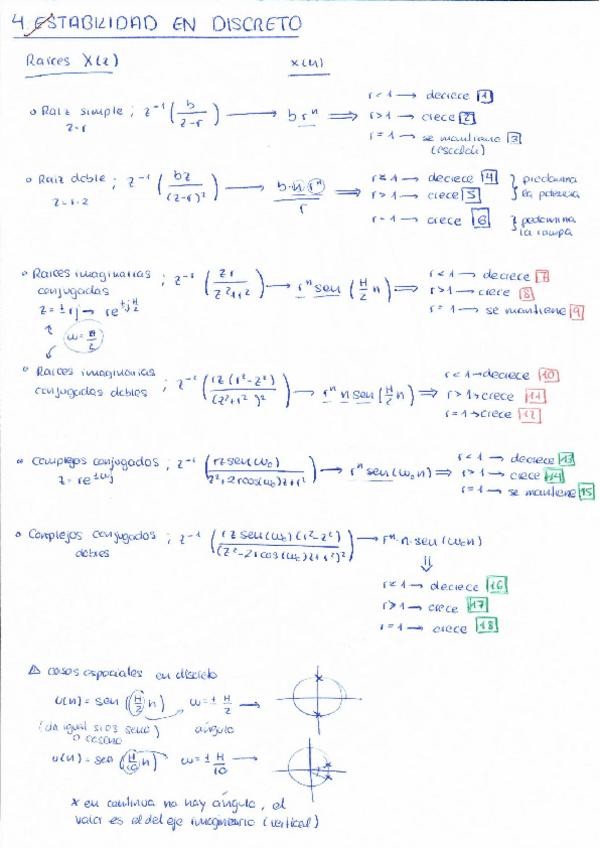 4. ESTABILIDAD EN DISCRETO
Raíces X(z) x(n)
o Raíz simple ; z⁻¹ (b / z-r) → b rⁿ ⇒ r < 1 → decrece 1
z=r r > 1 → crece 2
r = 1 → se mantiene 3
(escalón)
o Raíz doble ; z⁻¹ (bz / (z-r)²) → b·n·rⁿ / r ⇒ r < 1 → decrece 4 } predomina
z=r·2 r > 1 → crece 5 } la potencia
r = 1 → crece 6 } predomina
la rampa
o Raíces imaginarias ; z⁻¹ (zr / z²+r²) → rⁿ sen (H/2 n) ⇒ r < 1 → decrece 7
conjugadas r > 1 → crece 8
z = ± rj → re^±jH/2 r = 1 → se mantiene 9
w = H/2
o Raíces imaginarias ; z⁻¹ (rz (r²-z²) / (z²+r²)²) → rⁿ n sen (H/2 n) ⇒ r < 1 → decrece 10
conjugadas dobles r > 1 → crece 11
r = 1 → crece 12
o Complejos conjugados ; z⁻¹ (rz sen(w₀) / z²+2rcos(w₀)z+r²) → rⁿ sen (w₀n) ⇒ r < 1 → decrece 13
z = re^±wj r > 1 → crece 14
r = 1 → se mantiene 15
o Complejos conjugados ; z⁻¹ (rz sen(w₀)(r²-z²) / (z²-2rcos(w₀)z+r²)²) → rⁿ·n·sen(w₀n)
dobles
⇓
r < 1 → decrece 16
r > 1 → crece 17
r = 1 → crece 18
△ casos especiales en discreto
u(n) = sen (H/2 n) w = ± H/2 →
(da igual si es seno) ángulo
o coseno
u(n) = sen (H/10 n) w = ± H/10 →
* en continua no hay ángulo, el
valor es el del eje imaginario (vertical)